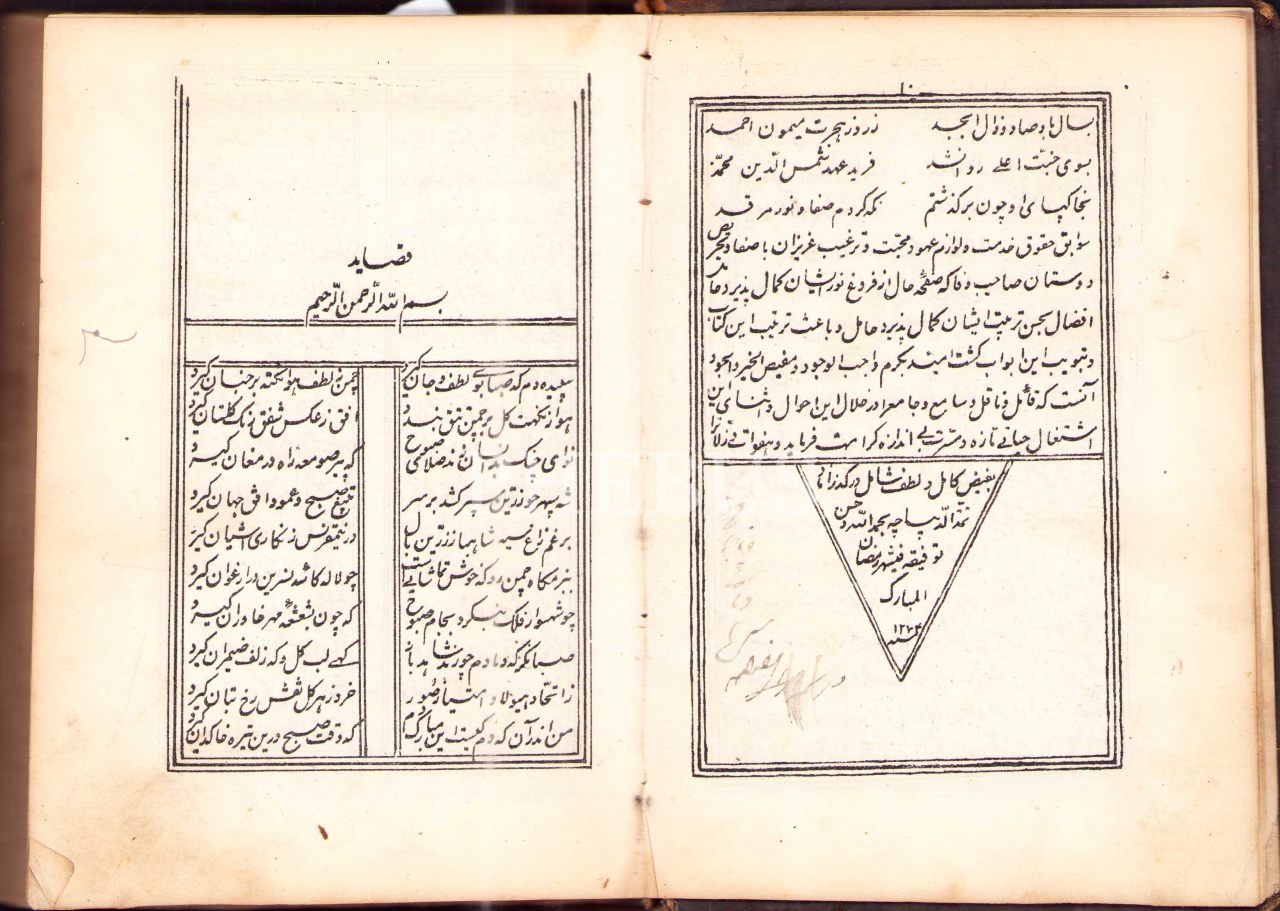 ۱۰
بسال با و صاد و ذال ابجد ز روز هجرت میمون احمد
بسوی جنّت اعلی روان شد فرید عهد شمس الدّین محمّد
بخاک پای او چون برگذشتم نگه کردم صفا و نور مرقد
سوابق حقوق خدمت و لوازم عهود محبّت و ترغیب عزیزان با صفا و تحریص
دوستان صاحب وفا که صفحهٔ حال از فروغ نور ایشان کمال پذیرد و حامد
افضال بحسن تربیت ایشان کمال پذیرد حامل و باعث ترتیب این کتاب
و تبویب این ابواب گشت امید بکرم واجب الوجود و مفیض الخیر و الجود
آنست که قائل و ناقل و سامع و جامع را در خلال این احوال و اثنای این
اشتغال حیاتی تازه و مسرّت بی اندازه کرامت فرماید و هفوات و زلات را
بفیض کامل و لطف شامل درگذراند
تمّة الدّیباچه بحمد الله و حسن
توفیقه فی شهر رمضان
المبارک
سنه ۱۲۷۴
قصاید
بسم الله الرّحمن الرّحیم
سپیده دم که صبا بوی لطف جان گیرد چمن ز لطف هوا نکته بر جنان گیرد
هوا ز نکهت گل بر چمن تتق بندد افق ز عکس شفق رنگ گلستان گیرد
نوای چنگ بدانسان زند صلای صبوح که پیر صومعه راه در مغان گیرد
شه سپهر چو زرّین سپر کشد بر سر بتیغ صبح و عمود افق جهان گیرد
بر غم زاغ سیه شاهباز زرّین بال درین مقرنس زنگاری آشیان گیرد
ببزمگاه چمن رو که خوش تماشائیست چو لاله کاسه نسرین و ارغوان گیرد
چو شهسوار فلک بنگرد بجام صبوح که چون بشعشعهٔ مهر خاوران گیرد
صبا نگر که دمادم چو رند شاهد باز گهی لب گل و که زلف ضیمران گیرد
ز اتّحاد هیولا و امتیاز صور خرد ز هر گل نقش رخ بتان گیرد
من اندر آن که دم کیست این مبارک دم که وقت صبح درین تیره خاکدان گیرد